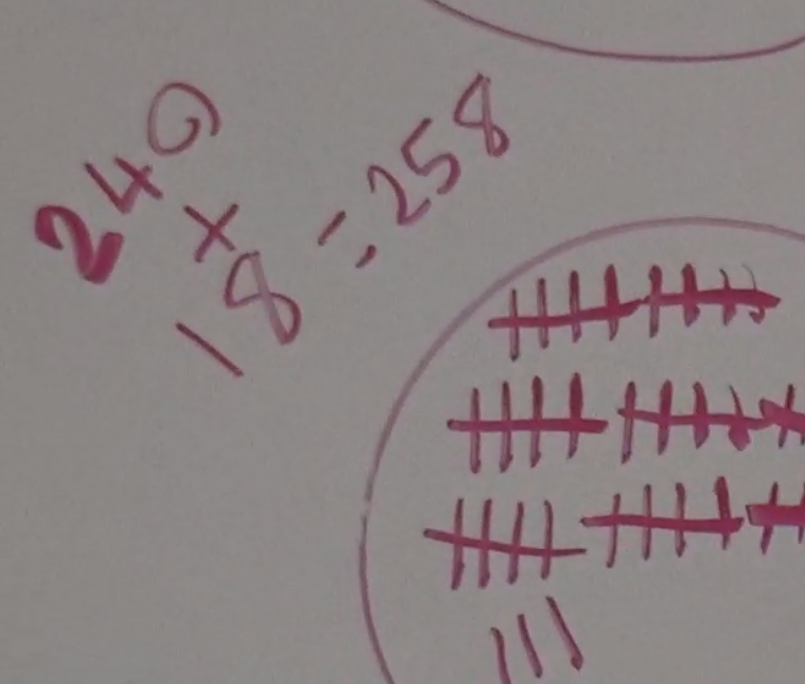 240
+
18 = 258